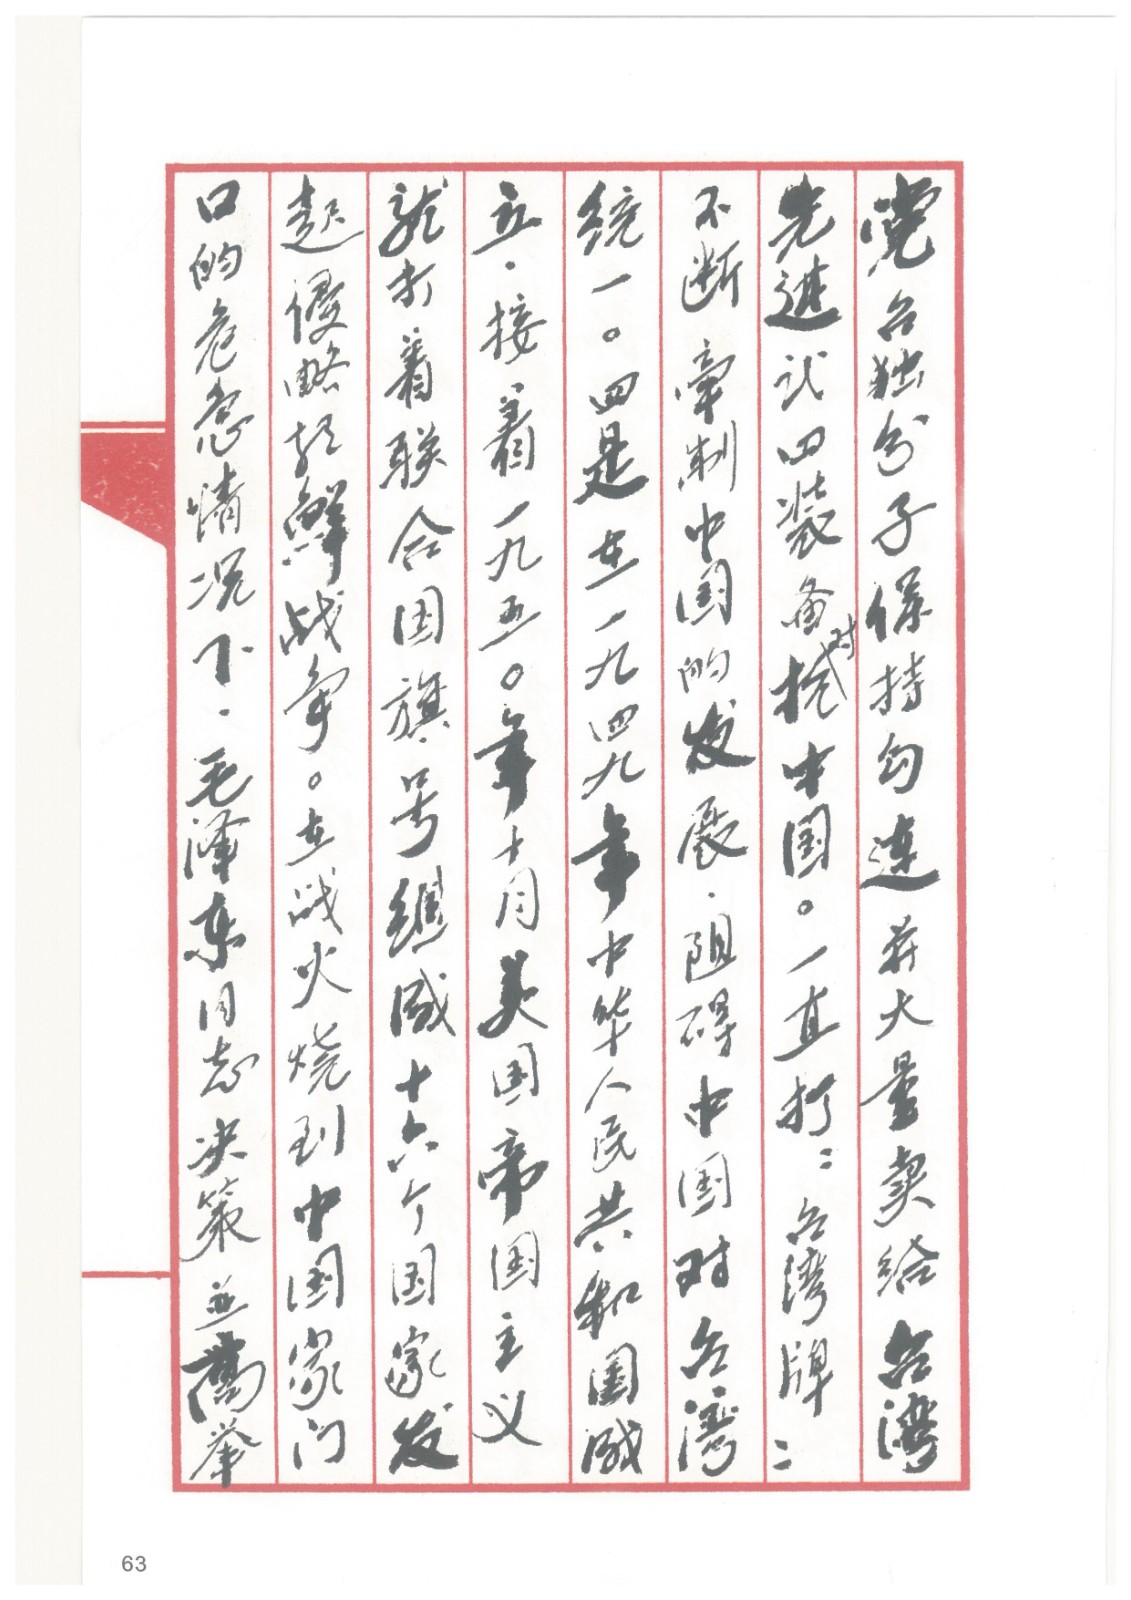 党台独分子保持勾连并大量卖给台湾
先进武四装备对抗中国。一直打：台湾牌：
不断牵制中国的发展．阻碍中国对台湾
统一。四是在一九四九年中华人民共和国成
立．接着一九五〇年十月美国帝国主义
就打着联合国旗．号继成十六个国家发
起侵略朝鲜战争。在战火烧到中国家门
口的危急情况下．毛泽东同志决策并高举
63